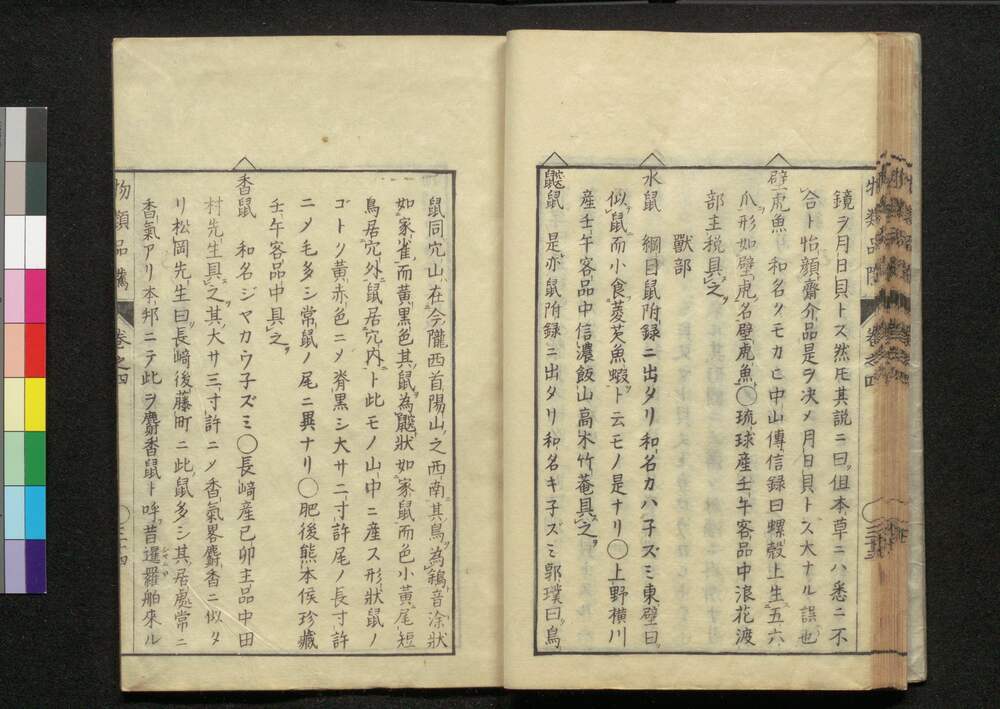 鏡ヲ月日貝トス然𪜈其説ニ曰但本草ニハ悉ニ不
合ト怡顔齋介品是ヲ决メ月日貝トス大ナル誤也
壁虎魚 和名クモカヒ中山傳信録曰螺殼上生五六
爪形如壁虎名壁虎魚〇琉球産壬午客品中浪花渡
部主税具之
獸部
水鼠 綱目鼠附録ニ出タリ和名カハ子ズミ東壁曰
似鼠而小食菱芡魚蝦ト云モノ是ナリ〇上野横川
産壬午客品中信濃飯山高木竹菴具之
鼵鼠 是亦鼠附録ニ出タリ和名キ子ズミ郭璞曰鳥
鼠同穴山在今隴西首陽山之西南其鳥為鵌音涂狀
如家雀而黄黒色其鼠為鼵狀如家鼠而色小黄尾短
鳥居穴外鼠居穴内ト此モノ山中ニ産ス形狀鼠ノ
ゴトク黄赤色ニメ脊黒シ大サ二寸許尾ノ長寸許
ニメ毛多シ常鼠ノ尾ニ異ナリ〇肥後熊本侯珍藏
壬午客品中具之
香鼠 和名ジヤカウ子ズミ〇長﨑産己卯主品中田
村先生具之其大サ三寸許ニメ香氣畧麝香ニ似タ
リ松岡先生曰長﨑後藤町ニ此鼠多シ其居處常ニ
香氣アリ本邦ニテ此ヲ麝香鼠ト呼昔暹羅舶來ル
物類品隲 卷之四 〇三十四